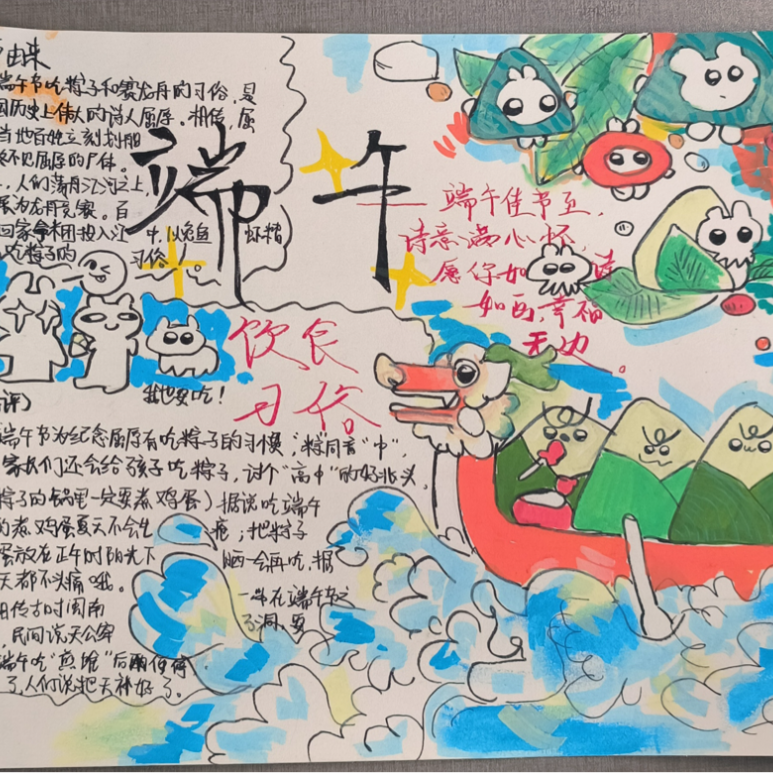 由来
端午节吃粽子和赛龙舟的习俗,是
国历史上伟大的诗人屈原。相传,屈
当地百姓立刻划船
不见屈原的尸体。
人们荡舟江河之上
展为龙舟竞赛。百
回家拿米团投入江中,以免鱼虾糟
吃粽子的习俗。
端午
端午佳节至,
诗意满心怀,
愿你如诗
如画,幸福
无边。
饮食
习俗
我也要吃!
端午节为纪念屈原有吃粽子的习惯,"粽同音"中",
家长们还会给孩子吃粽子,讨个"高中"的好兆头,
粽子的锅里一定要煮鸡蛋)据说吃端午
的煮鸡蛋夏天不会生疮;把粽子
蛋放在正午时阳光下晒一会再吃,据
天都不头痛哦。
传古时闽南一带在端午之
民间说天公穿了洞,要
端午吃"煎堆"后雨停得
了,人们说把天补好了。